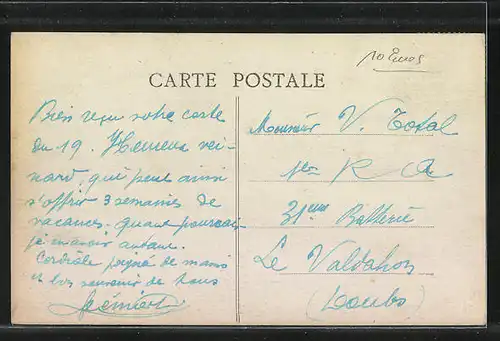 10 Euros
CARTE POSTALE
Bien reçu votre carte
du 19. Heureux vei-
nard, qui peut ainsi
s'offrir 3 semaines de
vacances. quand pourrai-
je en avoir autant.
Cordiale poignée de mains
et bon souvenir de tous
Monsieur V. Total
1er R A
31ème Batterie
Le Valdahon
(Doubs)